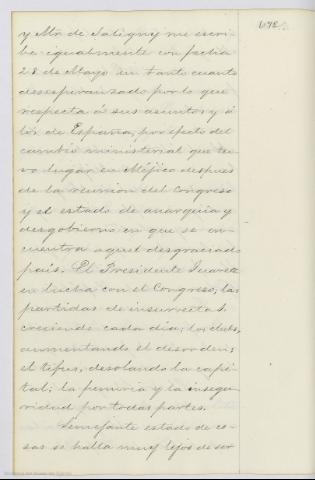 672.
y Mr. de Saligny me escri-
be igualmente con fecha
28 de Mayo en tanto cuanto
desesperanzado por lo que
respecta á sus asuntos y á
los de España, por efecto del
cambio ministerial que tu-
vo lugar en Méjico despues
de la reunion del Congreso
y el estado de anarquia y
desgobierno en que se en-
cuentra aquel desgraciado
pais. El Presidente Juarez
en lucha con el Congreso; las
partidas de insurrectos
creciendo cada dia; los clubs,
aumentando el desorden;
el tifus, desolando la capi-
tal; la penuria y la insegu-
ridad por todas partes.
Semejante estado de co-
sas se halla muy lejos de ser